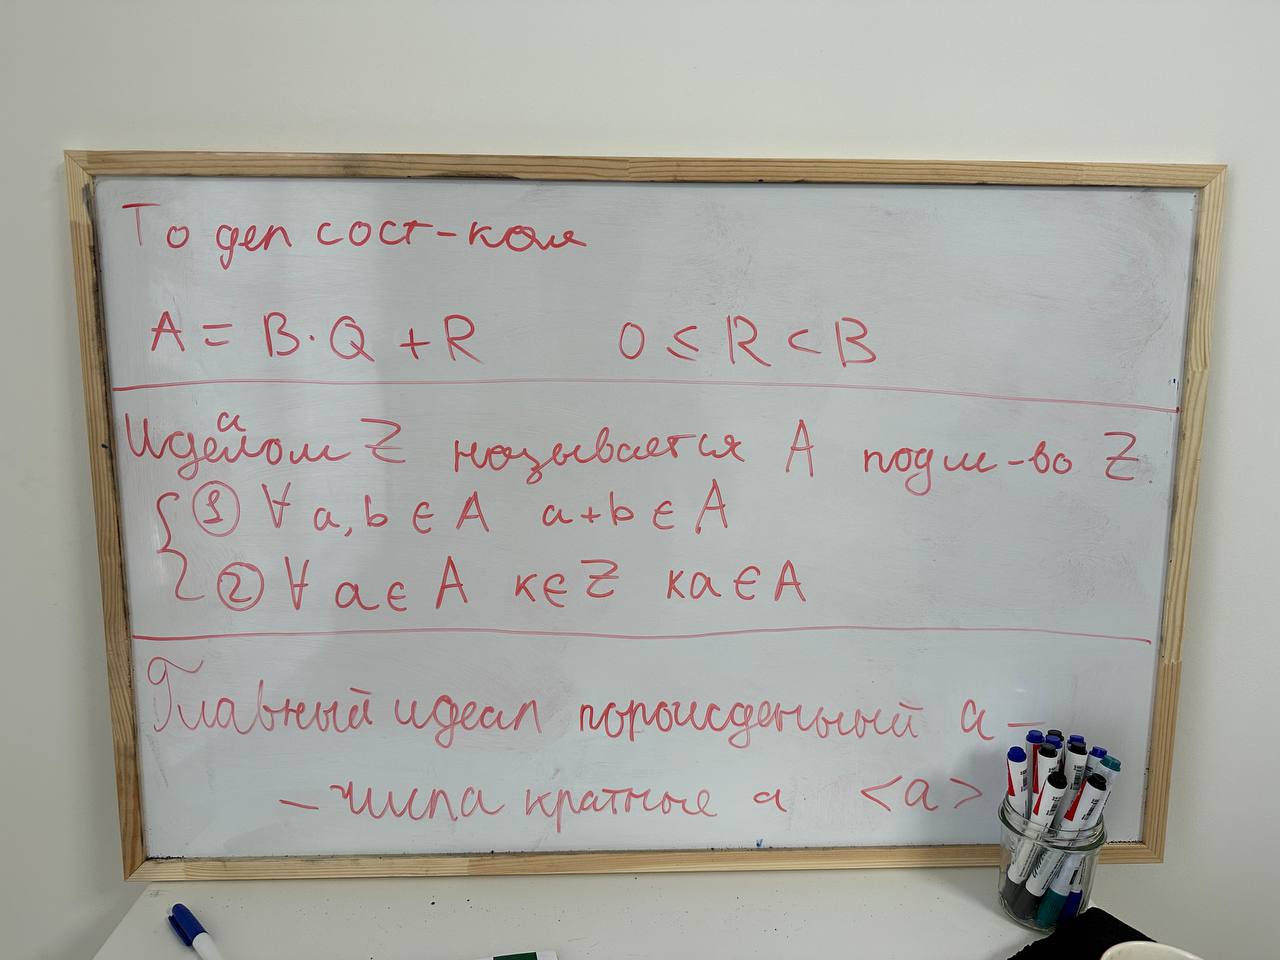 То дел сост-ком
A = B·Q + R 0 ≤ R < B
Идеалом Z называется A подм-во Z
{ ① ∀ a, b ∈ A a+b ∈ A
② ∀ a ∈ A k ∈ Z ka ∈ A
Главный идеал порожденный a –
– числа кратные a <a>